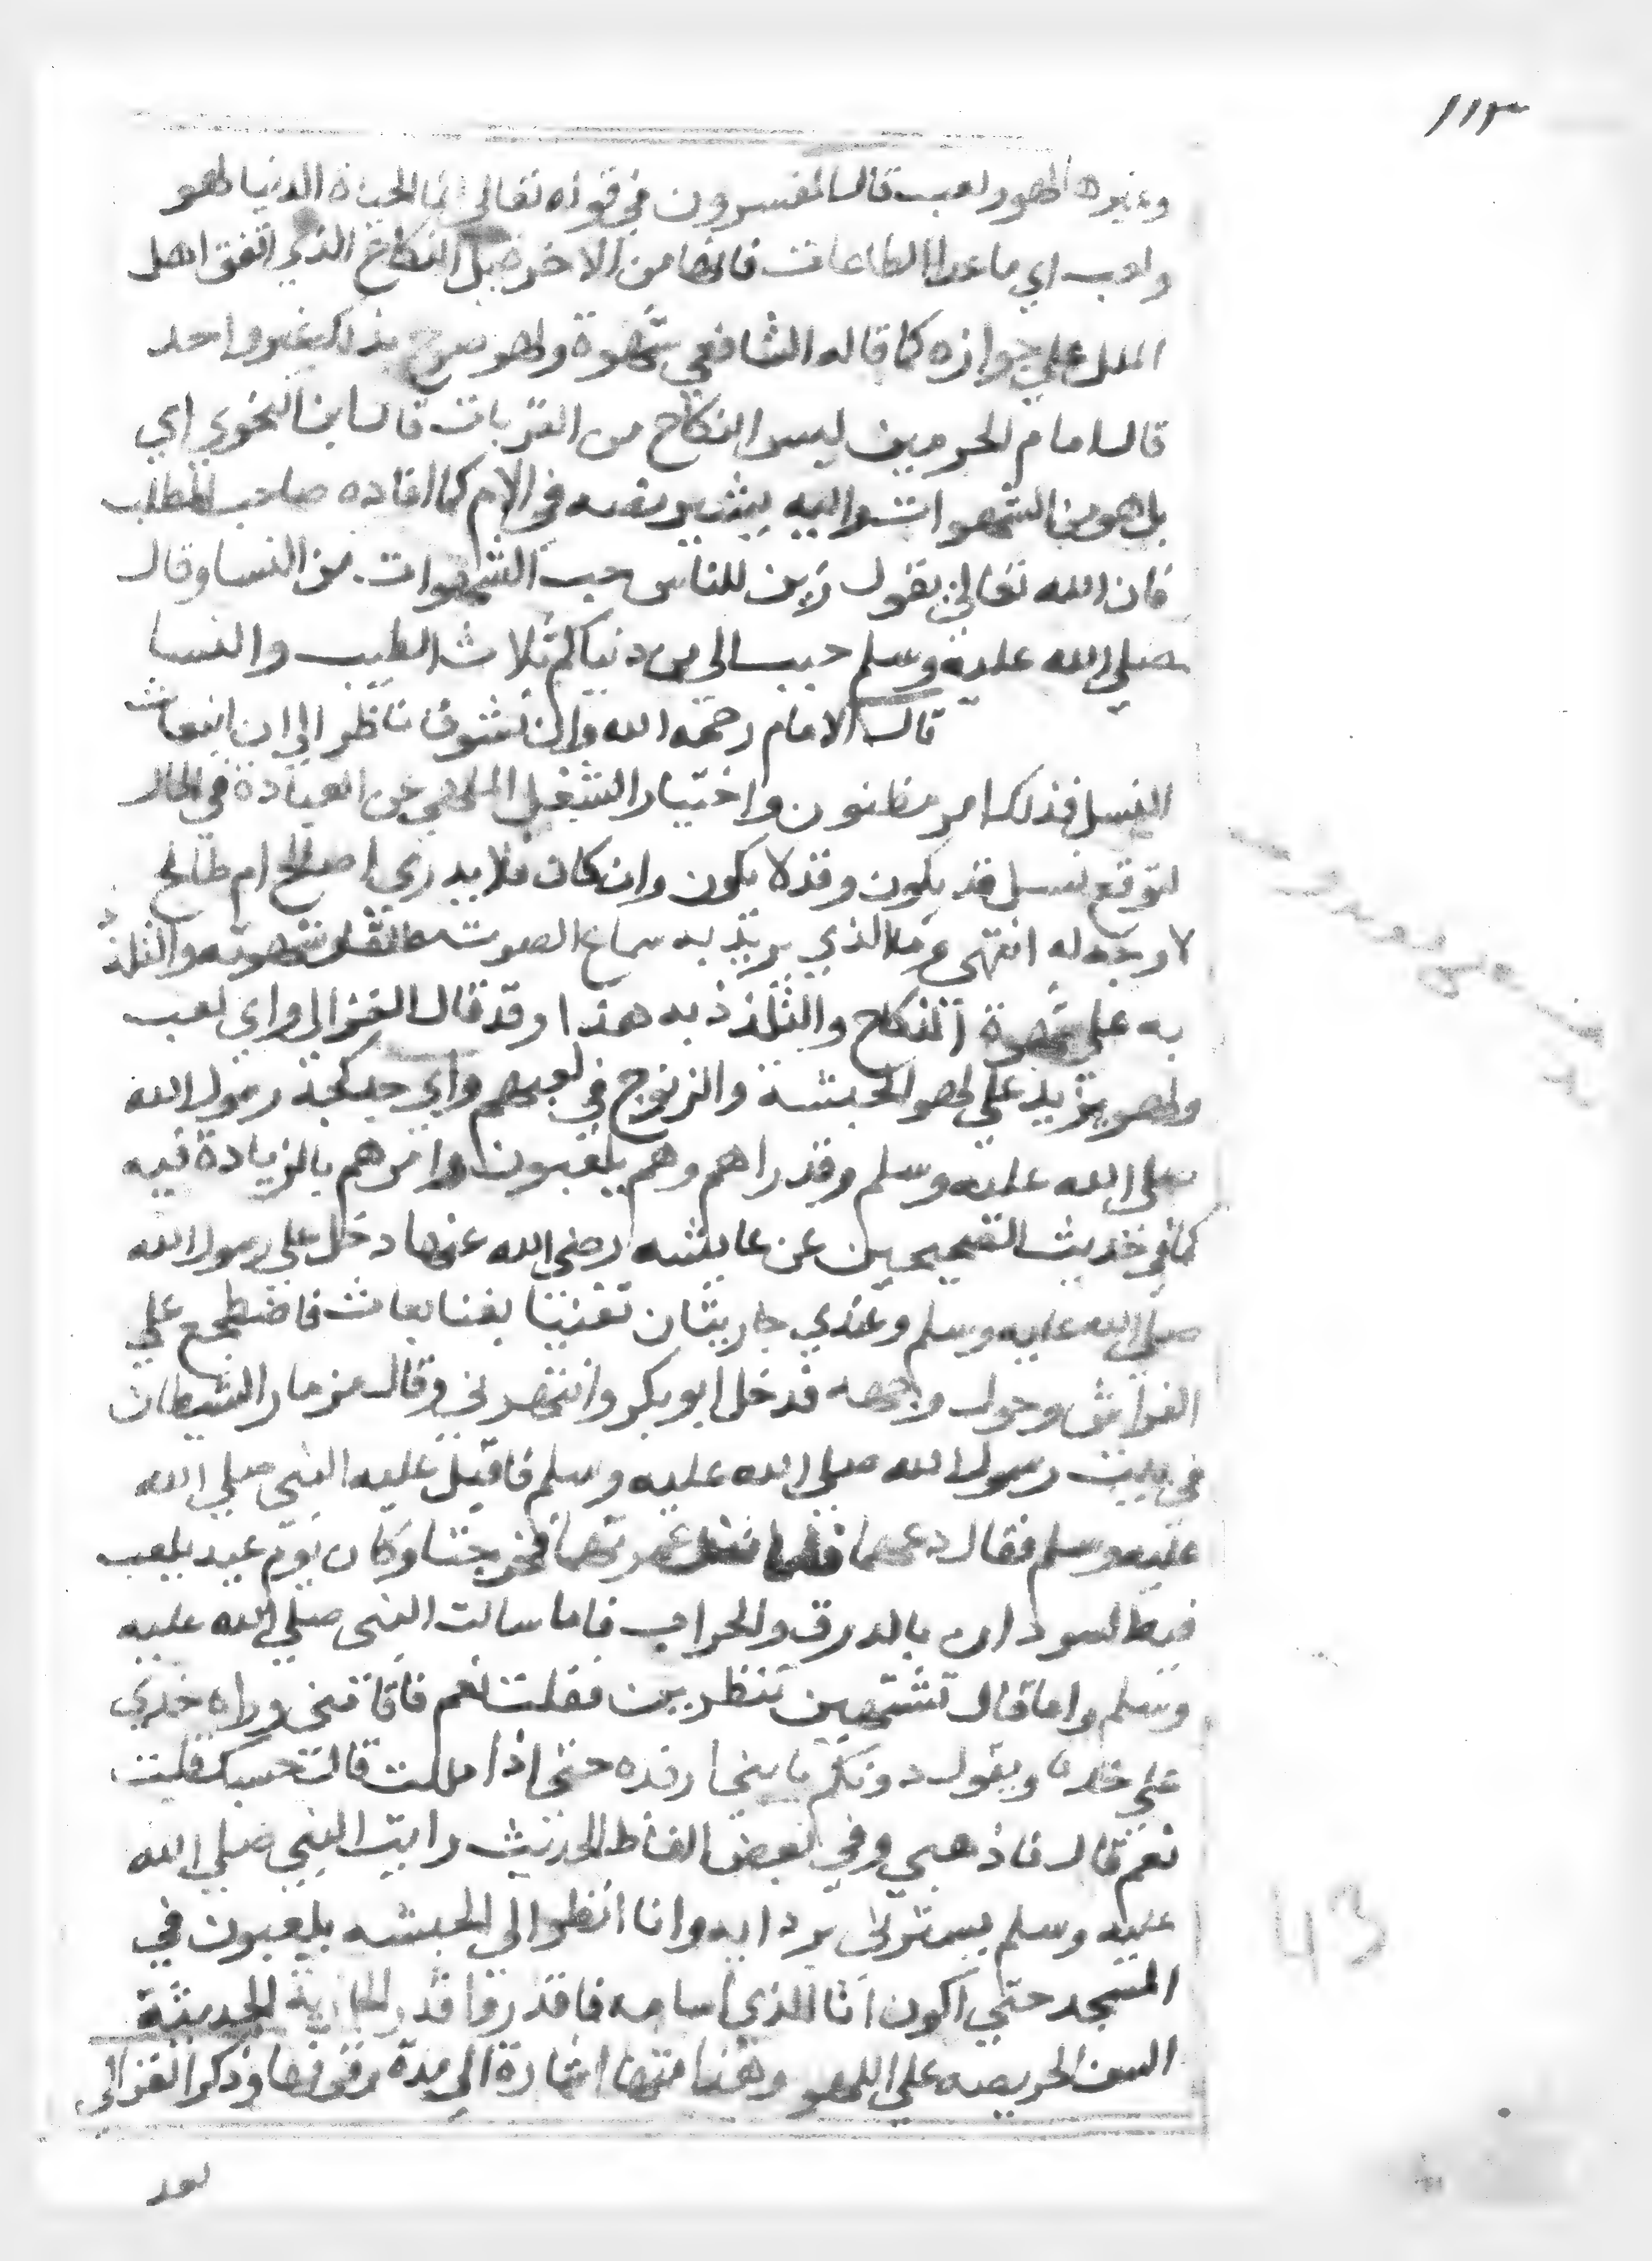 ١١٣
وغيرها لهو ولعب قال المفسرون في قوله تعالى انما الحياة الدنيا لهو
ولعب اي ما عدا الطاعات فانها من الاخرة بل النكاح الذي اتفق اهل
الملل علي جوازه كما قاله الشافعي شهوة ولهو صرح بذلك غير واحد
قال امام الحرمين ليس النكاح من القربات قال ابن النحوي اي
بل هو من الشهوات واليه يشير نصه في الام كما افاده صاحب المطلب
فان الله تعالي يقول زين للناس حب الشهوات من النسا وقال
صلي الله عليه وسلم حبب الى من دنياكم ثلاث الطيب والنسا
قال الامام رحمه الله وان تشوف ناظر الي ان انبعاث
النسل فذلك امر مظنون واختيار الشغل الملهي عن العبادة في الحال
لتوقع نسل قد يكون وقد لا يكون وان كان فلا يدري اصالح ام طالح
لا وجه له انتهى فما الذي يريد به سماع الصوت شهوته والتلذذ
به علي شهوة النكاح والتلذذ به هذا وقد قال الغزالي واي لعب
ولهو يزيد علي لهو الحبشة والزنوج في لعبهم واي رسول الله
صلى الله عليه وسلم وقد راهم وهم يلعبون وامرهم بالزيادة فيه
كما في حديث الصحيحين عن عايشه رضى الله عنها دخل علي رسول الله
صلي الله عليه وسلم وعندي جاريتان تغنيتا بغنا بعاث فاضطجع علي
الفراش وحول وجهه فدخل ابو بكر وانتهرني وقال مزمار الشيطان
في بيت رسول الله صلى الله عليه وسلم فاقبل عليه النبي صلي الله
عليه وسلم فقال دعهما فلما غفل غمزتهما فخرجتا وكان يوم عيد يلعب
فيه السودان بالدرق والحراب فاما سالت النبي صلي الله عليه
وسلم واما قال تشتهين تنظرين فقلت نعم فاقامني وراه خدي
علي خده ويقول دونكم يا بني ارفده حتى اذا مللت قال حسبك قلت
نعم قال فاذهبي وفي بعض الفاظ الحديث رايت النبي صلي الله
عليه وسلم يسترني بردايه وانا انظر الي الحبشه يلعبون في
المسجد حتي اكون انا الذي اسامه فاقدروا قدر الجارية الحديثة
السن الحريصه علي اللهو وهذا منها اشارة الي مدة وقوفها وذكر الغزالي
بعد
43